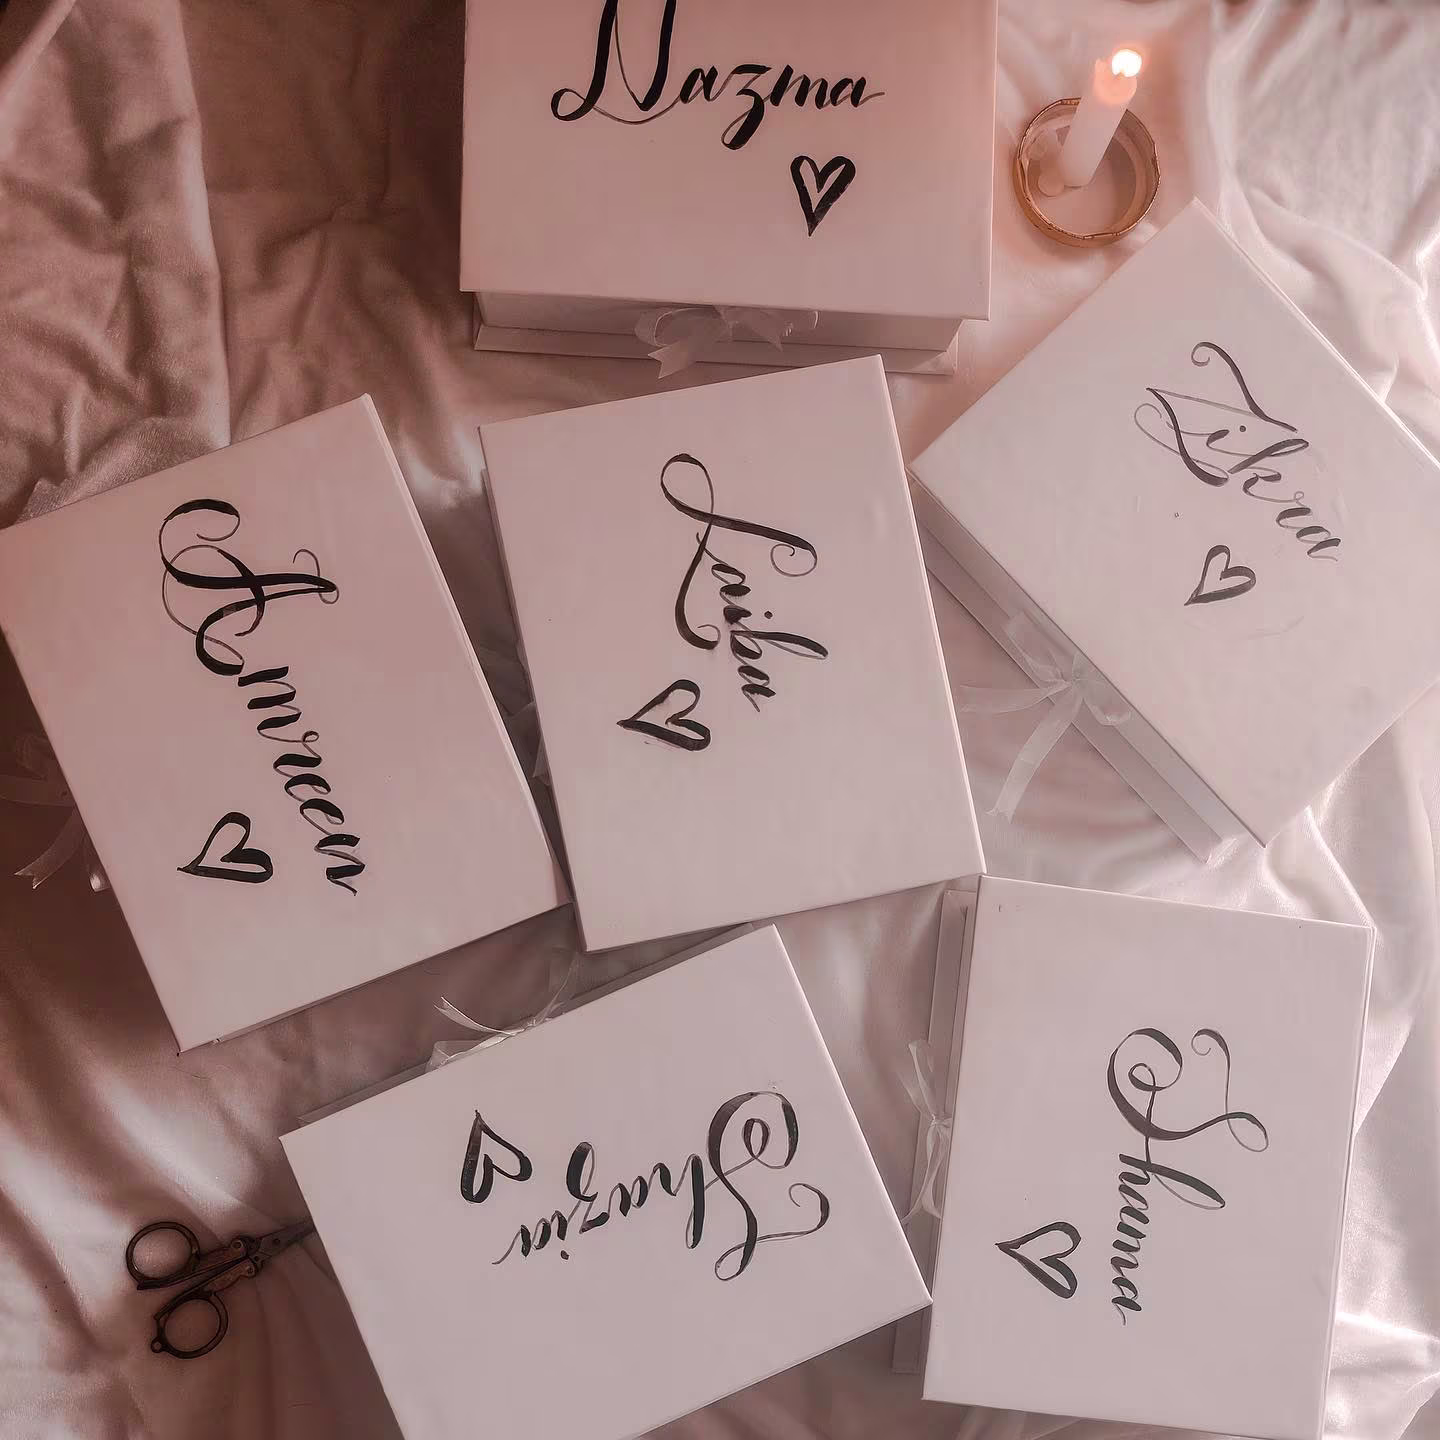 Nazma
Zikra
Laiba
Amreen
Shazia
Shama